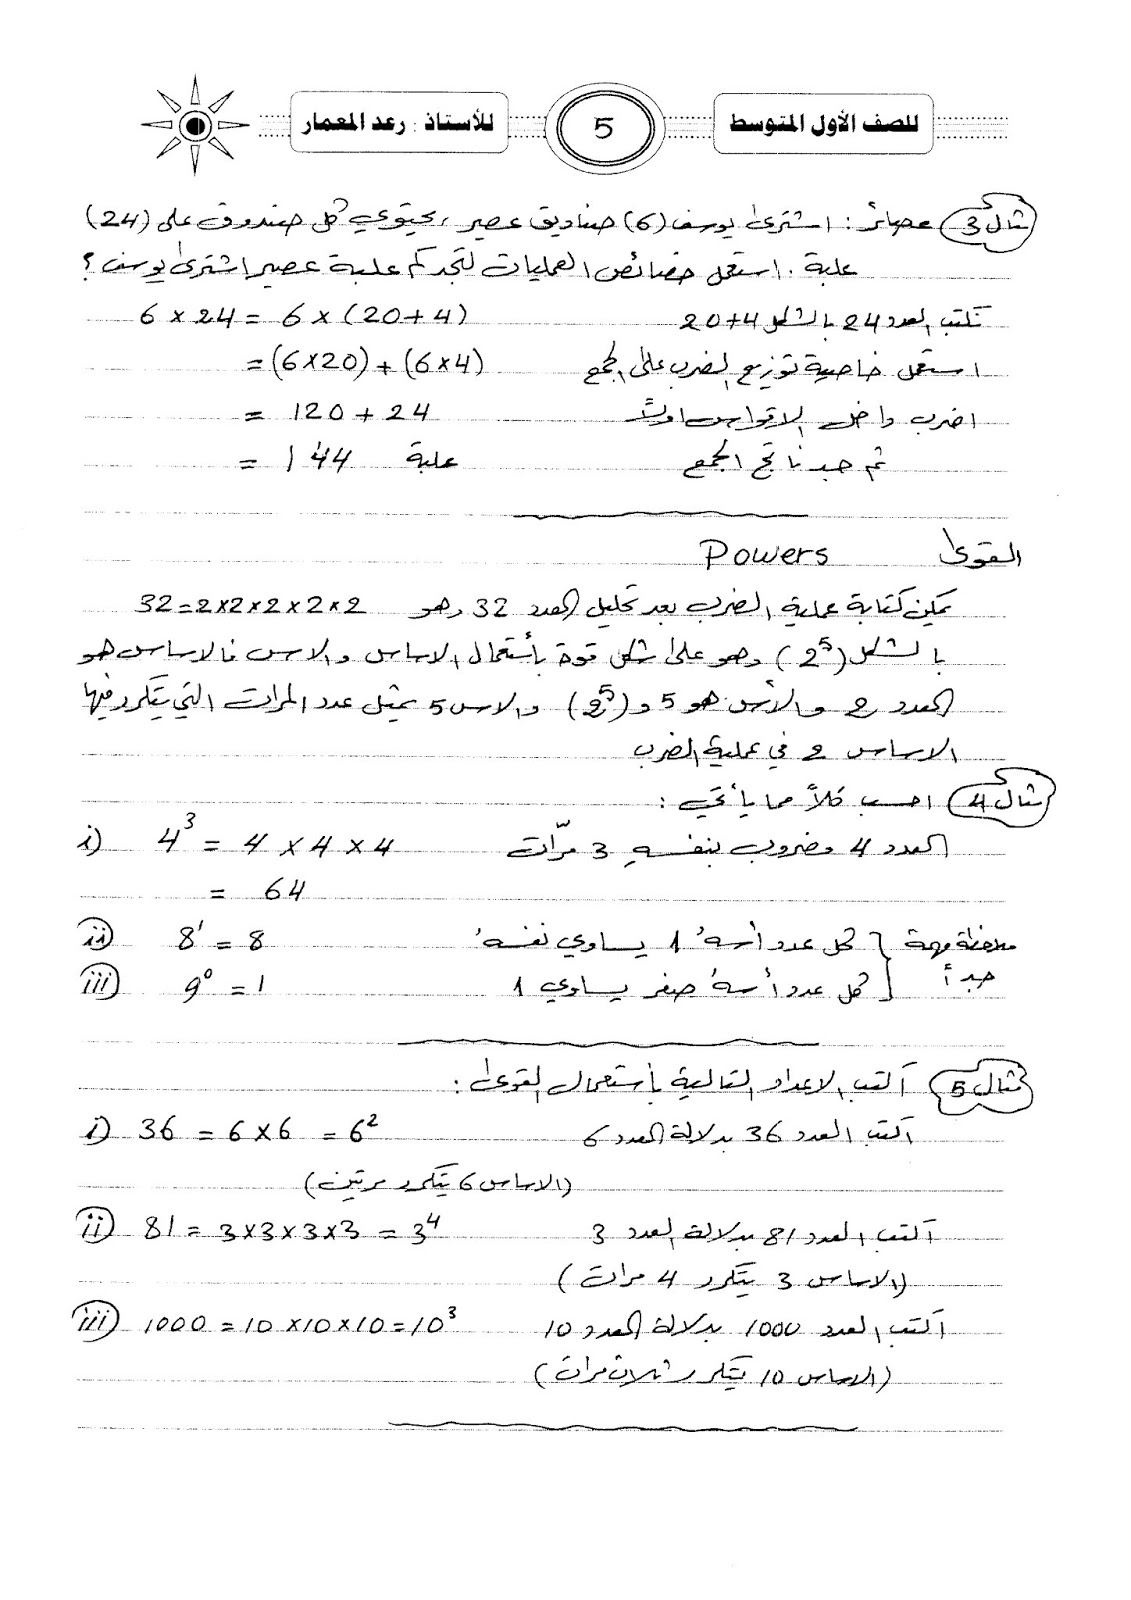 للصف الأول المتوسط 5 للأستاذ : رعد المعمار
مثال 3 عصائر : اشترى يوسف (6) صناديق عصير ، يحتوي كل صندوق على (24)
علبة . استعمل خصائص العمليات لتجد كم علبة عصير اشترى يوسف ؟
نكتب العدد 24 بالشكل 4+20 6 × 24 = 6 × (20 + 4)
استعمل خاصية توزيع الضرب على الجمع = (6×20) + (6×4)
اضرب داخل الاقواس اولاً = 120 + 24
ثم جد ناتج الجمع = 144 علبة
القوى Powers
يمكن كتابة عملية الضرب بعد تحليل العدد 32 وهو 32=2×2×2×2×2
بالشكل (2⁵) وهو على شكل قوة بأستعمال الاساس والاس فالاساس هو
العدد 2 والأس هو 5 و (2⁵) والاس 5 يمثل عدد المرات التي يتكرر فيها
الاساس 2 في عملية الضرب
مثال 4 احسب كلاً مما يأتي :
العدد 4 مضروب بنفسه 3 مرّات i) 4³ = 4 × 4 × 4
= 64
ملاحظة مهمة كل عدد أسهُ 1 يساوي نفسهُ ii) 8¹ = 8
جداً كل عدد أسهُ صفر يساوي 1 iii) 9⁰ = 1
مثال 5 اكتب الاعداد التالية بأستعمال القوى :
اكتب العدد 36 بدلالة العدد 6 i) 36 = 6×6 = 6²
(الاساس 6 يتكرر مرتين)
اكتب العدد 81 بدلالة العدد 3 ii) 81 = 3×3×3×3 = 3⁴
(الاساس 3 يتكرر 4 مرات)
اكتب العدد 1000 بدلالة العدد 10 iii) 1000 = 10×10×10 = 10³
(الاساس 10 يتكرر ثلاث مرات)